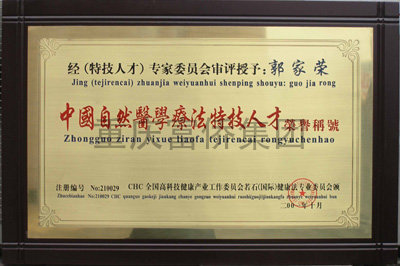 经(特技人才)专家委员会审评授予:郭家荣
Jing (tejirencai) zhuanjia weiyuanhui shenping shouyu: guo jia rong
中國自然醫學療法特技人才榮譽稱號
Zhongguo ziran yixue liaofa tejirencai rongyuchenhao
注册编号 No:210029 CHC 全国高科技健康产业工作委员会若石(国际)健康法专业委员会颁